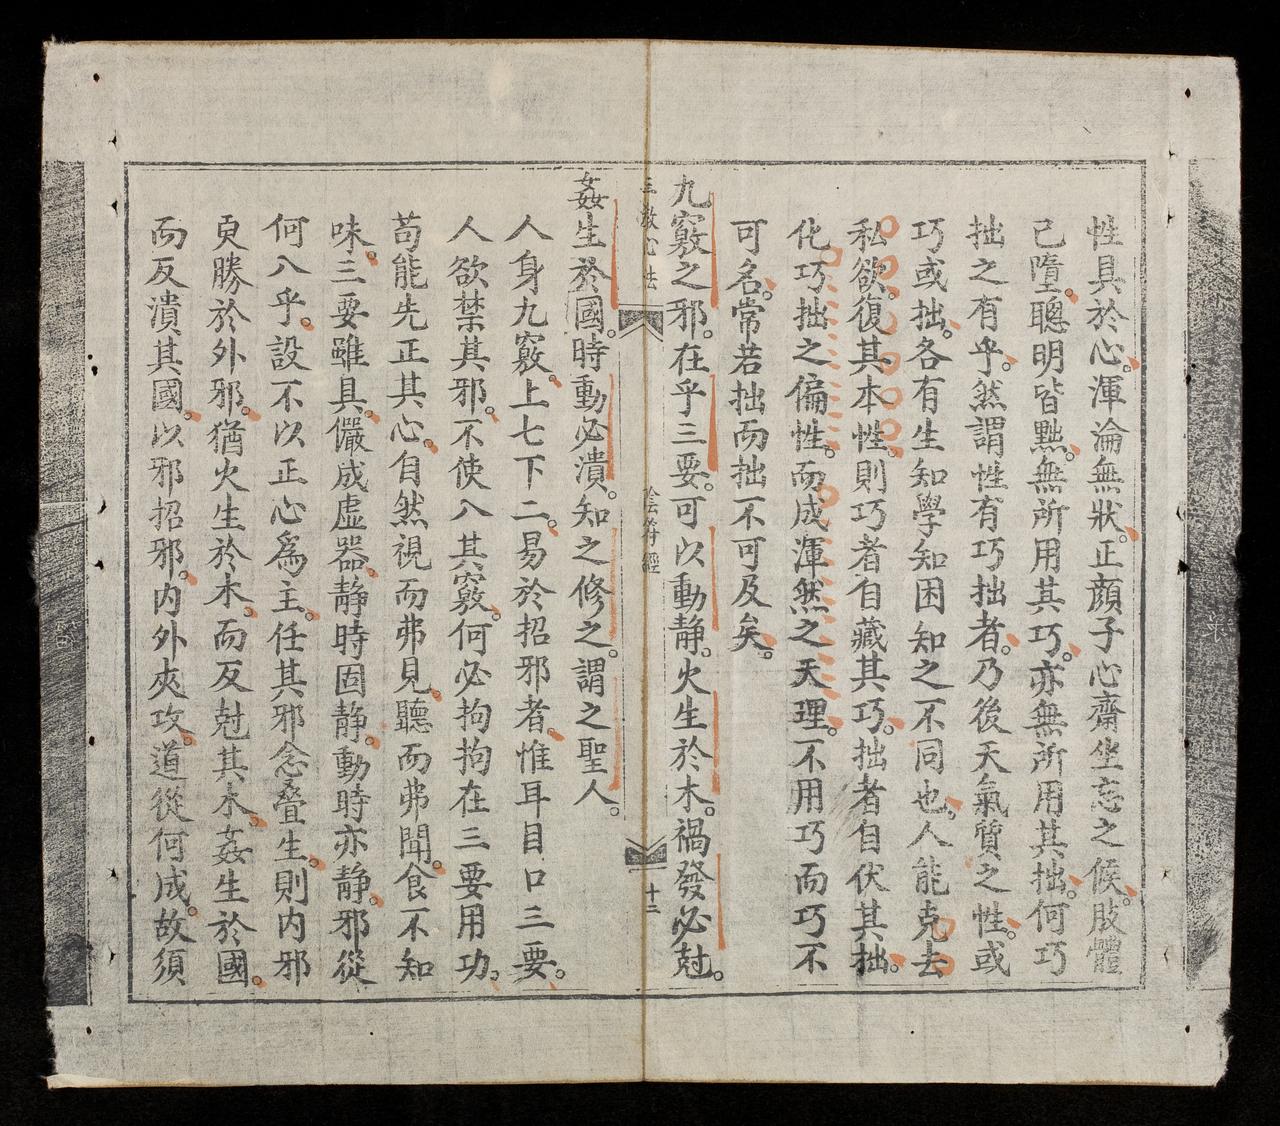 性具於心。渾淪無狀。正顏子心齋坐忘之候。肢體
已墮。聰明皆黜。無所用其巧。亦無所用其拙。何巧
拙之有乎。然謂性有巧拙者。乃後天氣質之性。或
巧或拙。各有生知學知困知之不同也。人能克去
私欲。復其本性。則巧者自藏其巧。拙者自伏其拙。
化巧拙之偏性。而成渾然之天理。不用巧而巧不
可名。常若拙而拙不可及矣。
九竅之邪。在乎三要。可以動靜。火生於木。禍發必尅。
三教心法 陰符經 十二
姦生於國。時動必潰。知之修之。謂之聖人。
人身九竅。上七下二。易於招邪者。惟耳目口三要。
人欲禁其邪。不使入其竅。何必拘拘在三要用功。
苟能先正其心。自然視而弗見。聽而弗聞。食不知
味。三要雖具。儼成虛器。靜時固靜。動時亦靜。邪從
何入乎。設不以正心為主。任其邪念叠生。則內邪
更勝於外邪。猶火生於木。而反尅其木。姦生於國。
而反潰其國。以邪招邪。內外夾攻。道從何成。故須